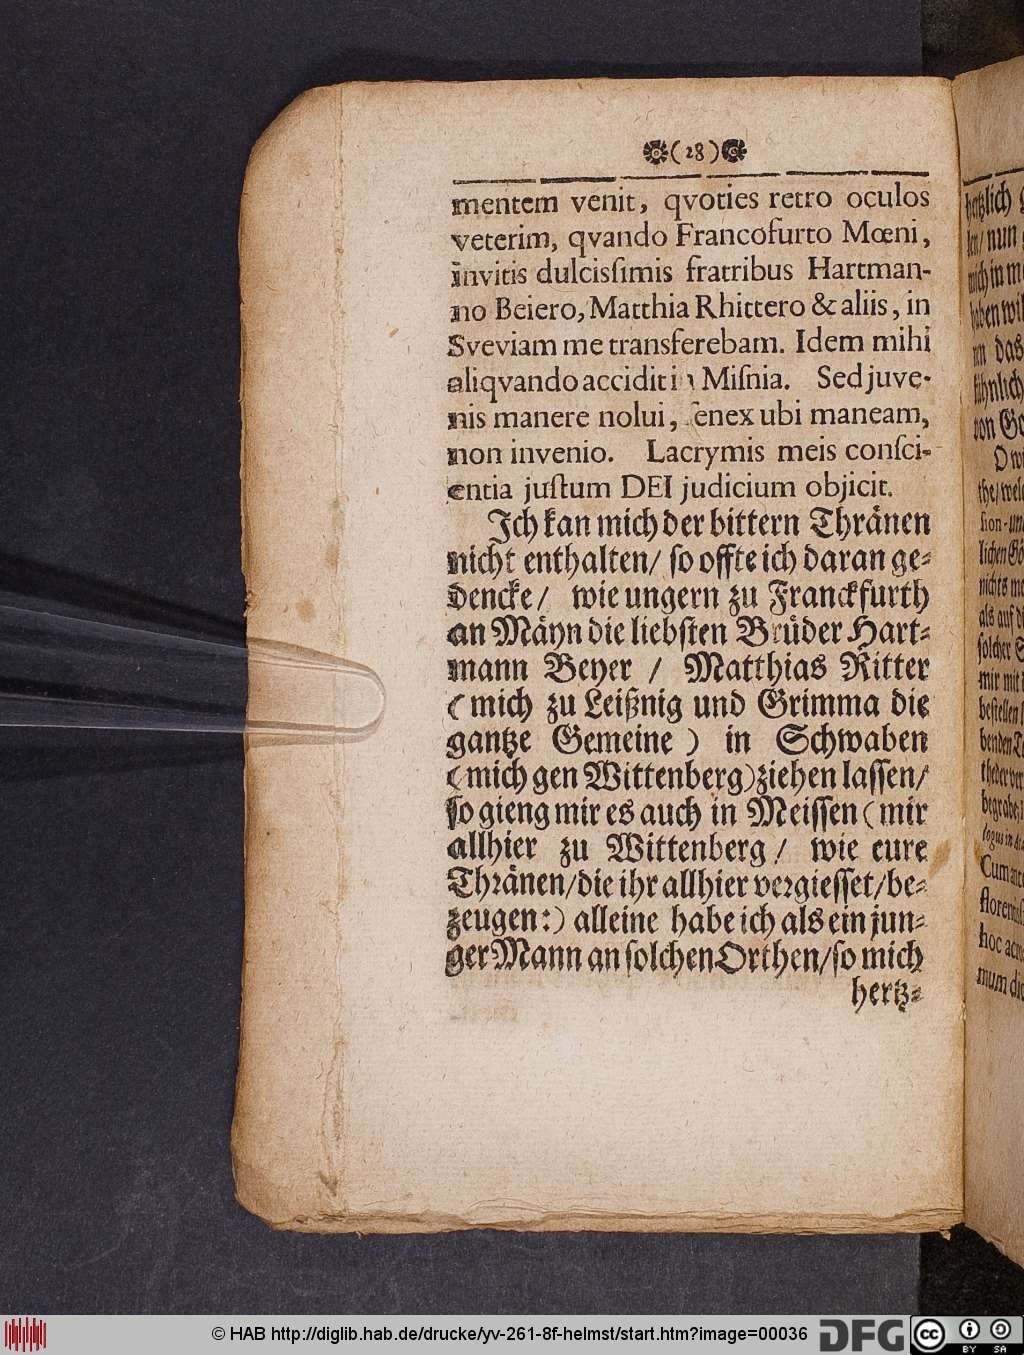 (28)
mentem venit, qvoties retro oculos
veterim, qvando Francofurto Mœni,
invitis dulcisſimis fratribus Hartman-
no Beiero, Matthia Rhittero & aliis, in
Sveviam me transferebam. Idem mihi
aliqvando accidit in Miſnia. Sed juve-
nis manere nolui, ſenex ubi maneam,
non invenio. Lacrymis meis conſci-
entia juſtum DEI judicium objicit.
Ich kan mich der bittern Thränen
nicht enthalten/ ſo offte ich daran ge-
dencke/ wie ungern zu Franckfurth
an Mäyn die liebſten Brüder Hart-
mann Beyer / Matthias Ritter
(mich zu Leißnig und Grimma die
gantze Gemeine) in Schwaben
(mich gen Wittenberg)ziehen laſſen/
ſo gieng mir es auch in Meiſſen (mir
allhier zu Wittenberg/ wie eure
Thränen/die ihr allhier vergieſſet/be-
zeugen:) alleine habe ich als ein jun-
ger Mann an ſolchen Orthen/ſo mich
hertz-
hertzlich
nun
mich in
haben
das
von
solcher
mir mit
als auf
hoc
© HAB http://diglib.hab.de/drucke/yv-261-8f-helmst/start.htm?image=00036
DFG
cc
BY SA